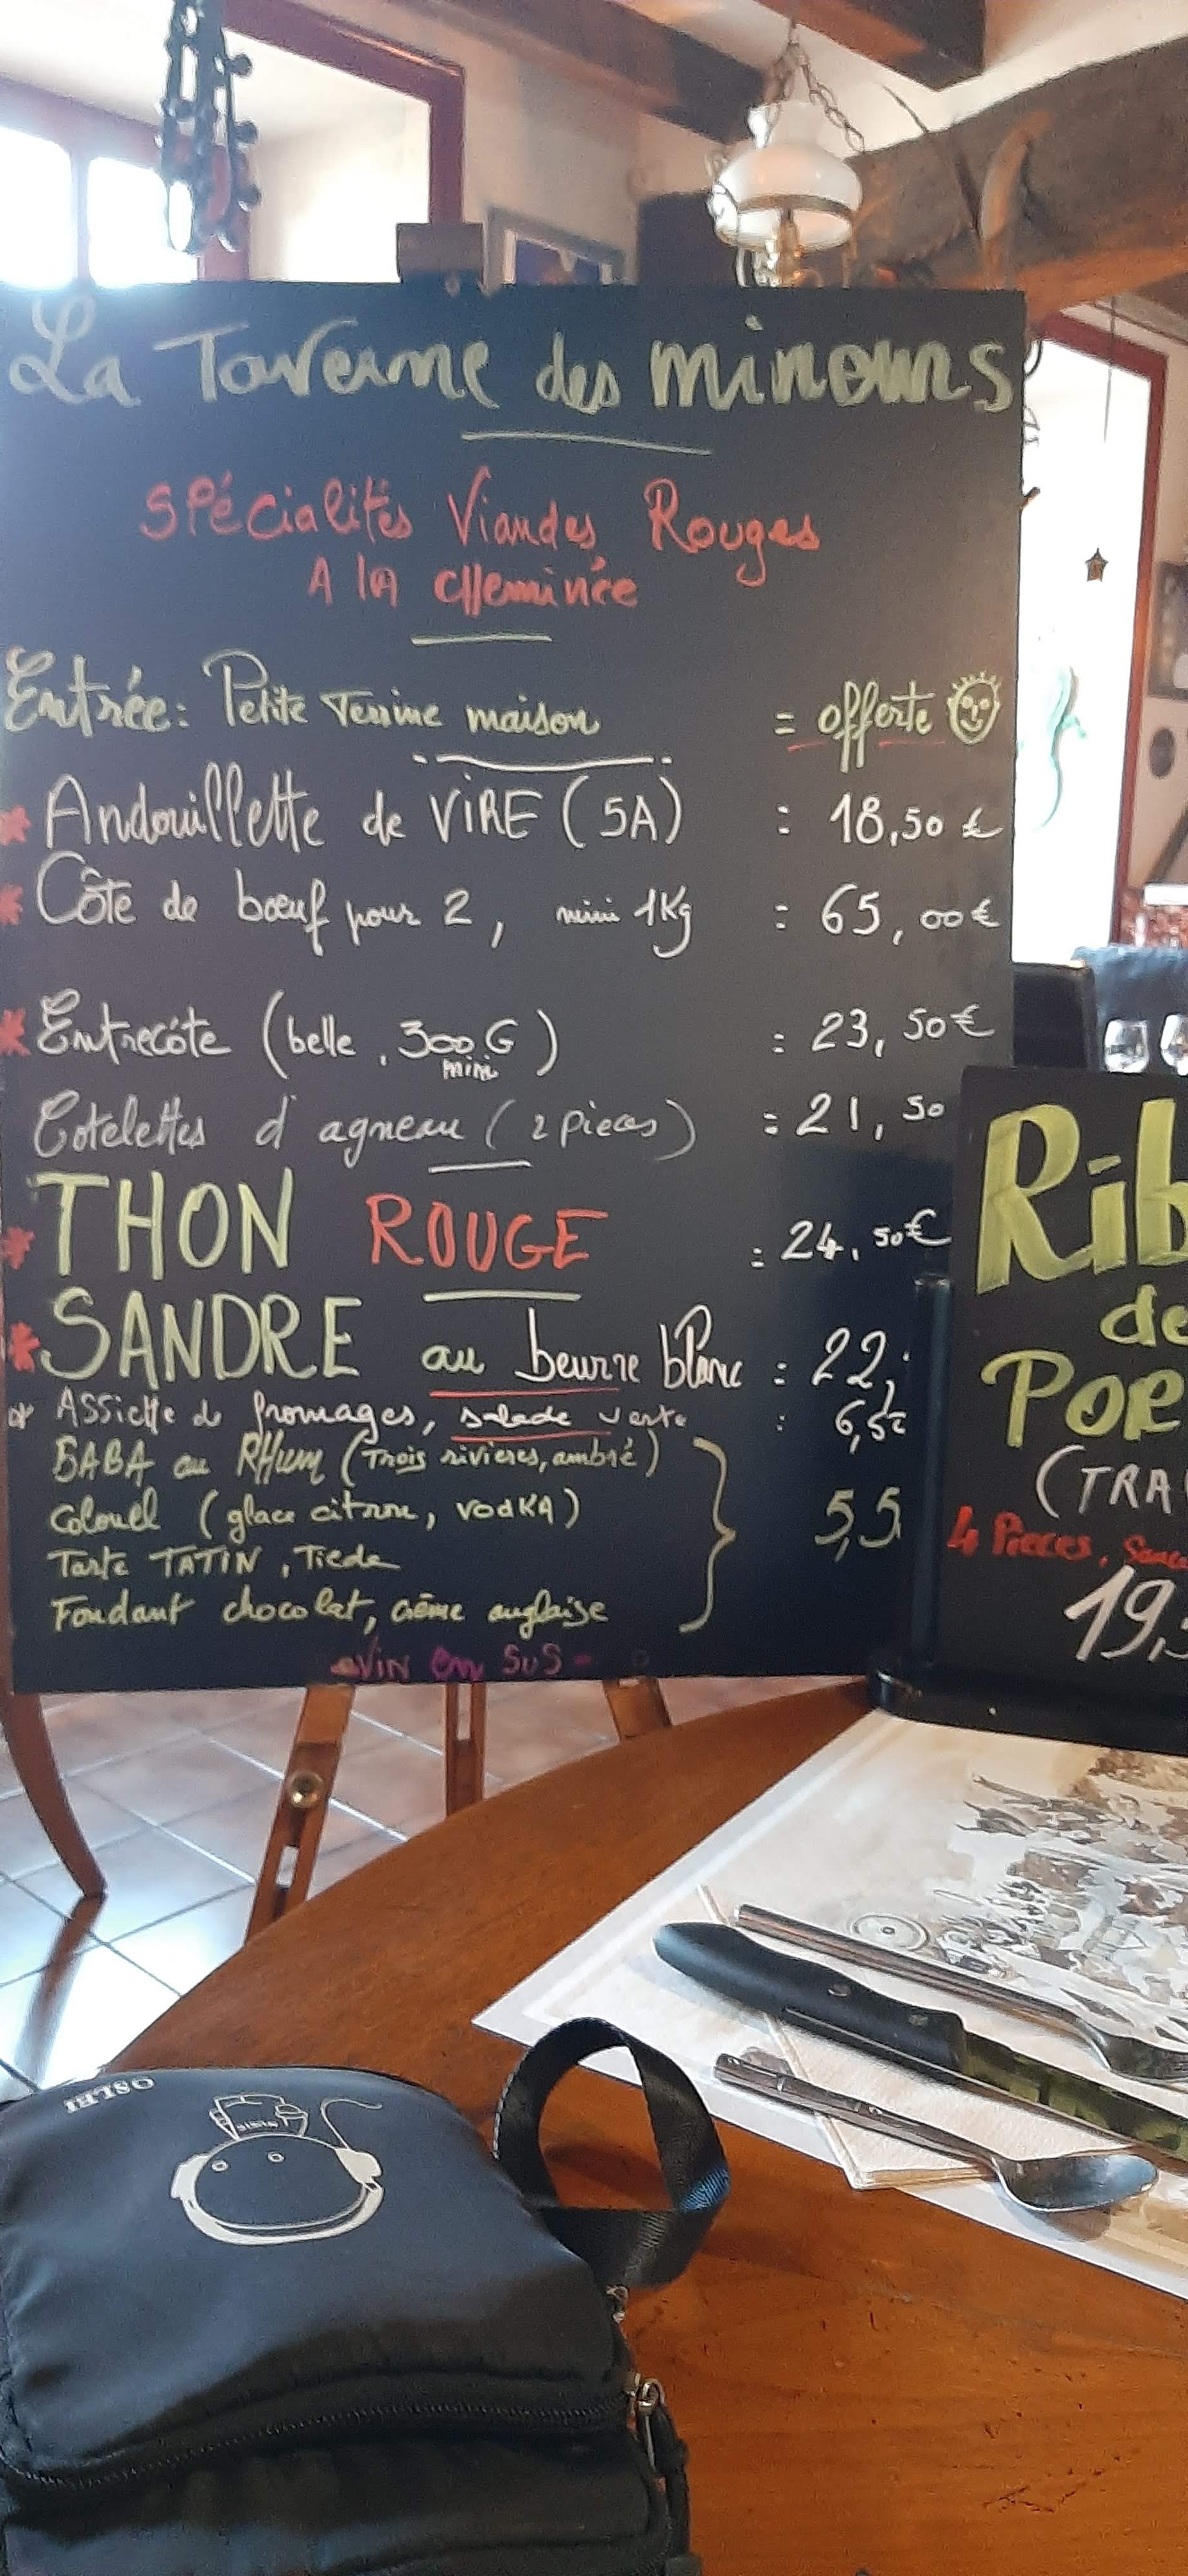 La Taverne des minours
Spécialités Viandes Rouges
A la cheminée
Entrée: Petite Terrine maison = offerte
* Andouillette de VIRE (5A) : 18,50 €
* Côte de bœuf pour 2, mini 1Kg : 65,00 €
* Entrecôte (belle, 300G mini) : 23,50 €
Cotelettes d'agneau (2 pieces) = 21,50
* THON ROUGE : 24,50€
* SANDRE au beurre blanc : 22,
* Assiette de fromages, salade verte : 6,50
BABA au RHum (Trois rivieres, ambré)
Colonel (glace citron, vodKA) 5,5
Tarte TATIN, Tiede
Fondant chocolat, crème anglaise
-Vin en SUS-
Rib
de
POR
(TRA
4 Pieces, Sauce
19,5
OSLBI